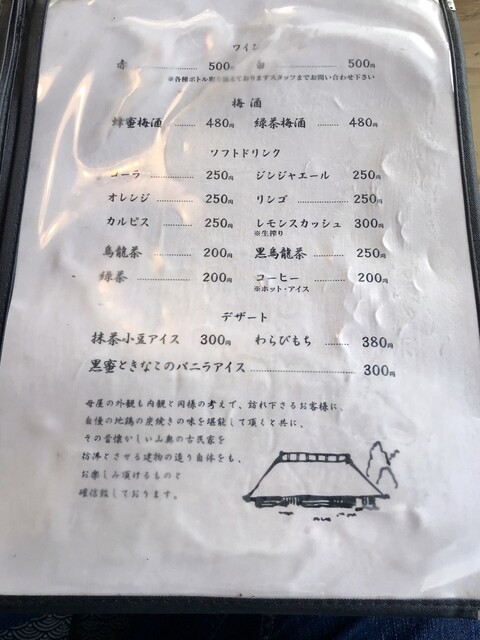 ワイン
赤 500円 白 500円
※各種ボトル類 えておりますスタッフまでお問い合わせ下さい
梅酒
蜂蜜梅酒 ........ 480円 緑茶梅酒 ........ 480円
ソフトドリンク
コーラ ........ 250円 ジンジャエール ........ 250円
オレンジ ........ 250円 リンゴ ........ 250円
カルピス ........ 250円 レモンスカッシュ 300円
※生搾り
烏龍茶 ........ 200円 黒烏龍茶 ........ 250円
緑茶 ........ 200円 コーヒー ........ 200円
※ホット・アイス
デザート
抹茶小豆アイス 300円 わらびもち ........ 380円
黒蜜ときなこのバニラアイス ........ 300円
母屋の外観も内観と同様の考えで、訪れ下さるお客様に、
自慢の地鶏の炭焼きの味を堪能して頂くと共に、
その昔懐かしい山奥の古民家を
彷彿とさせる建物の造り自体をも、
お楽しみ頂けるものと
確信致しております。